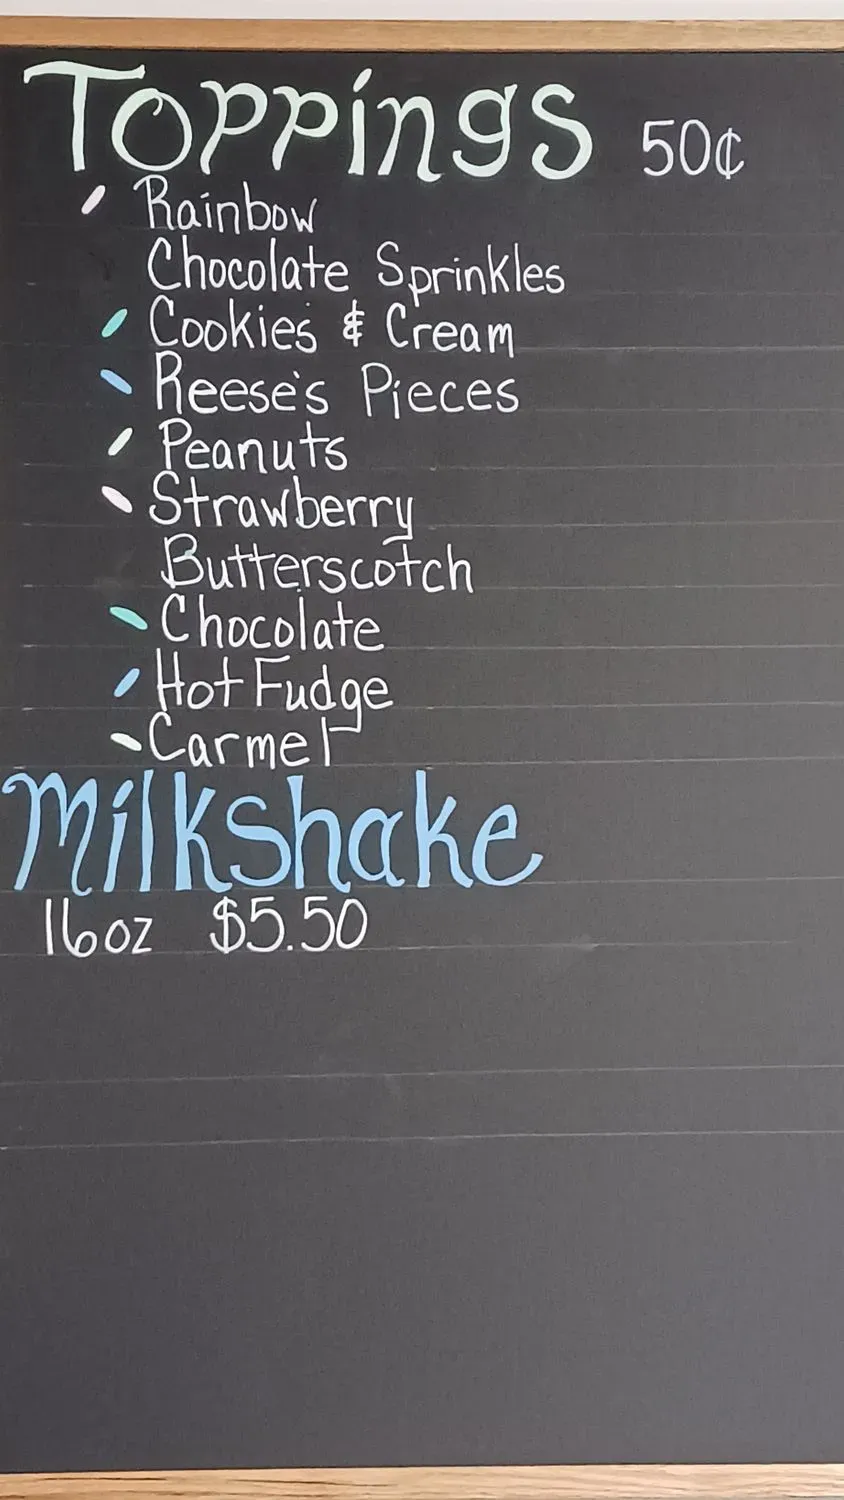 Toppings 50¢
Rainbow
Chocolate Sprinkles
Cookies & Cream
Reese's Pieces
Peanuts
Strawberry
Butterscotch
Chocolate
Hot Fudge
Carmel
Milkshake
16oz $5.50